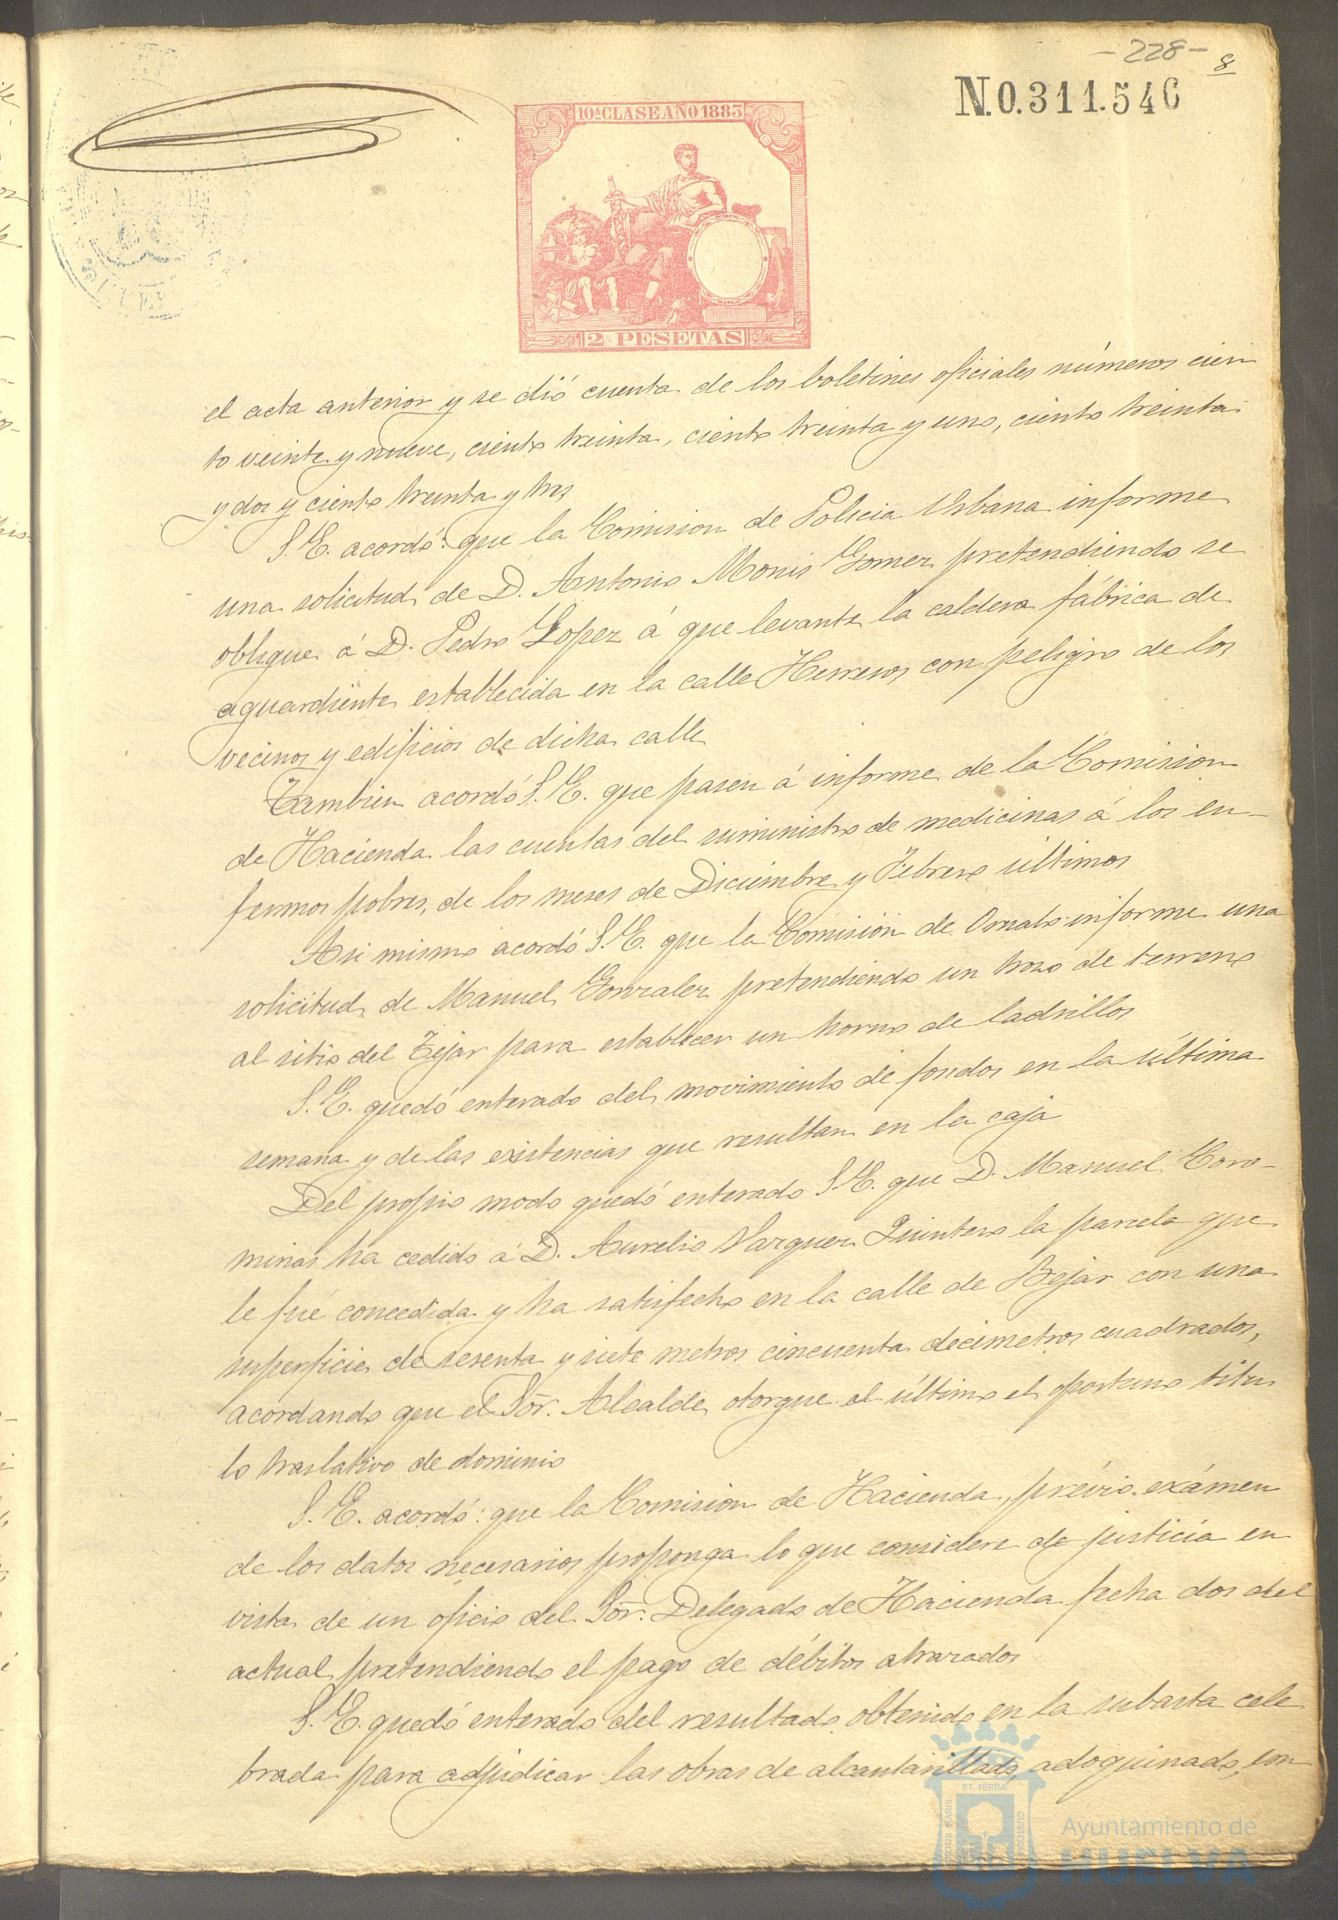 -228-
8
N.0.311.546
10ª CLASE AÑO 1883
2 PESETAS
el acta anterior y se dió cuenta de los boletines oficiales números cien
to veinte y nueve, ciento treinta, ciento treinta y uno, ciento treinta
y dos y ciento treinta y tres
S.E. acordó: que la Comision de Policia Urbana informe
una solicitud de D. Antonio Monis Gomez pretendiendo se
obligue á D. Pedro Lopez á que levante la caldera fábrica de
aguardiente establecida en la calle Herreros, con peligro de los
vecinos y edificios de dicha calle
Tambien acordó S.E. que pasen á informe de la Comision
de Hacienda las cuentas del suministro de medicinas á los en-
fermos pobres, de los meses de Diciembre y Febrero últimos
Asi mismo acordó S.E. que la Comisión de Ornato informe una
solicitud de Manuel Gonzalez pretendiendo un trozo de terreno
al sitio del Tejar para establecer un horno de ladrillos
S.E. quedó enterado del movimiento de fondos en la última
semana y de las existencias que resultan en la caja
Del propio modo quedó enterado S.E. que D. Manuel Coro-
minas ha cedido á D. Aurelio Vazquez Quintero la parcela que
le fué concedida y ha satisfecho en la calle de Bejar con una
superficie de sesenta y siete metros cincuenta decimetros cuadrados,
acordando que el Sor. Alcalde otorgue al último el oportuno titu
lo traslativo de dominio
S.E. acordó: que la Comision de Hacienda, prévio exámen
de los datos necesarios proponga lo que considere de justicia en
vista de un oficio del Sor. Delegado de Hacienda fecha dos del
actual pretendiendo el pago de débitos atrazados
S.E. quedó enterado del resultado obtenido en la subasta cele
brada para adjudicar las obras de alcantarillado, adoquinado, em
ET TERRA
Ayuntamiento de
HUELVA